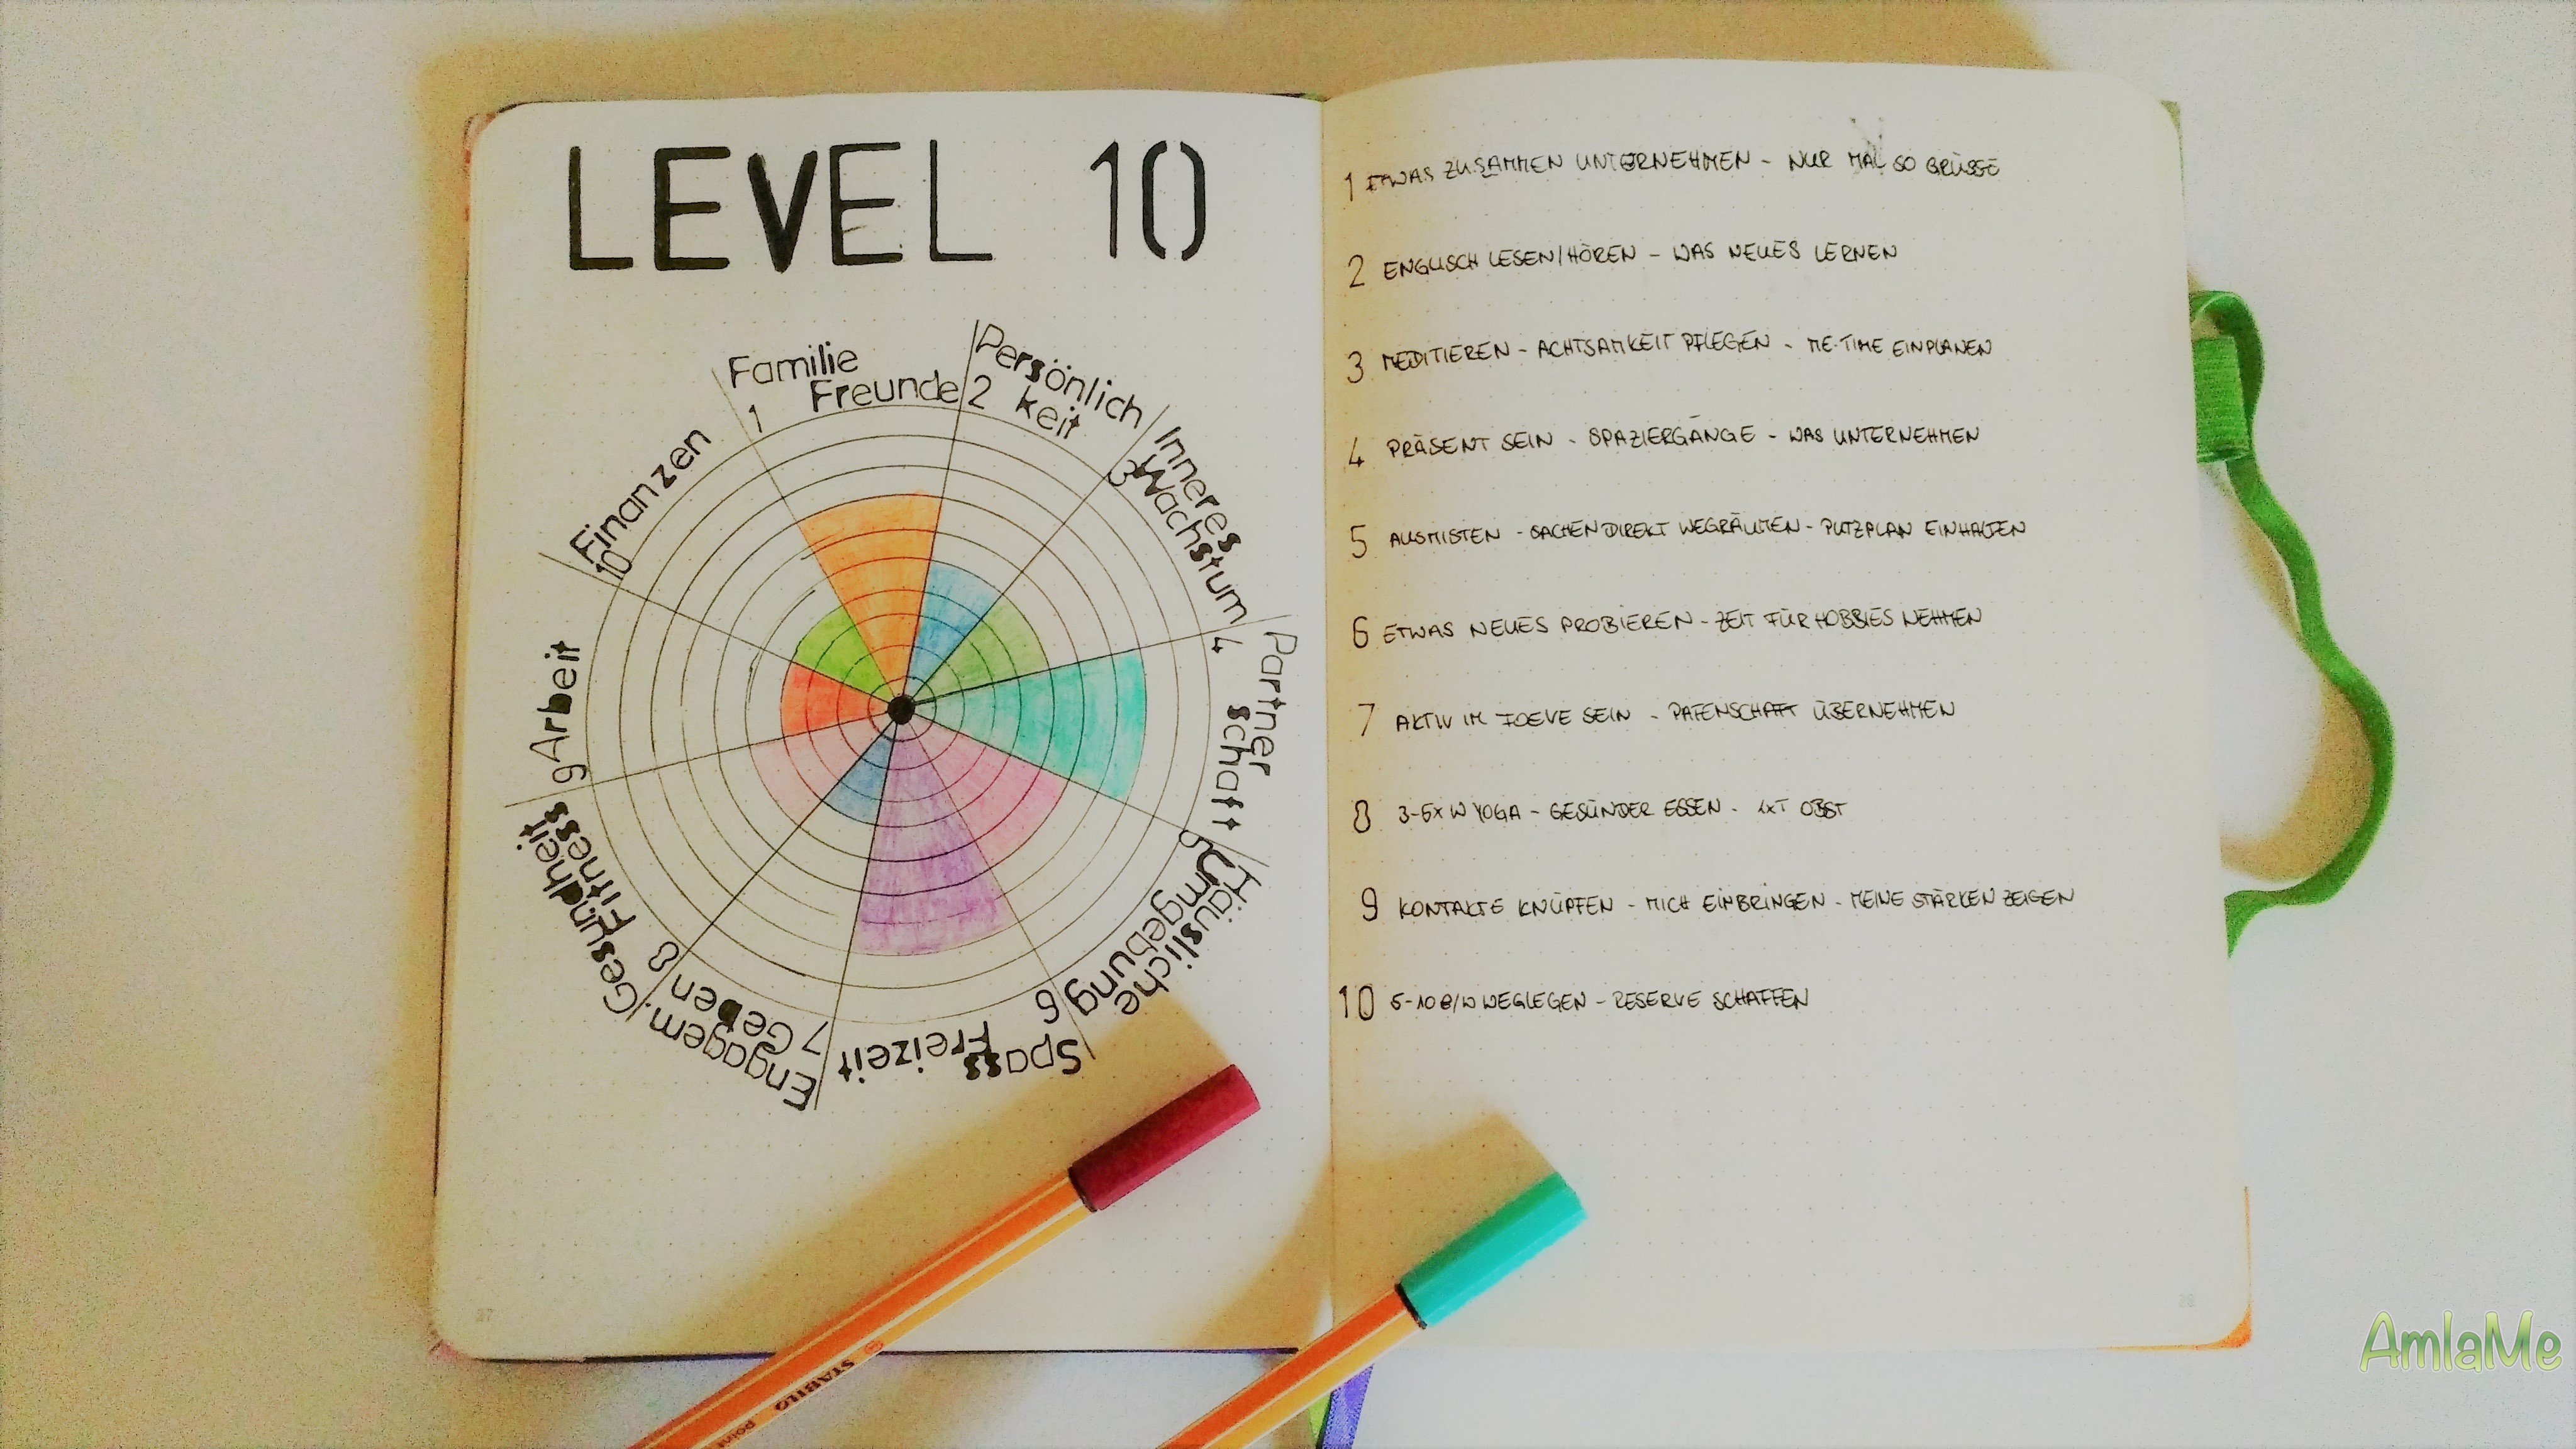 LEVEL 10
Familie
Freunde
1
Persönlich
keit
2
Inneres
Wachstum
3
Partner
schaft
4
Häusliche
Umgebung
5
Spass
Freizeit
6
Engagem.
Geben
7
Gesundheit
Fitness
8
Arbeit
9
Finanzen
10
27
1 ETWAS ZUSAMMEN UNTERNEHMEN - NUR MAL SO GRÜSSE
2 ENGLISCH LESEN/HÖREN - WAS NEUES LERNEN
3 MEDITIEREN - ACHTSAMKEIT PFLEGEN - ME-TIME EINPLANEN
4 PRÄSENT SEIN - SPAZIERGÄNGE - WAS UNTERNEHMEN
5 AUSMISTEN - SACHEN DIREKT WEGRÄUMEN - PUTZPLAN EINHALTEN
6 ETWAS NEUES PROBIEREN - ZEIT FÜR HOBBIES NEHMEN
7 AKTIV IM SEIN - PATENSCHAFT ÜBERNEHMEN
8 3-5x W YOGA - GESÜNDER ESSEN - 1xT OBST
9 KONTAKTE KNÜPFEN - MICH EINBRINGEN - MEINE STÄRKEN ZEIGEN
10 5-10€/W WEGLEGEN - RESERVE SCHAFFEN
28
STABILO
point
AmlaMe